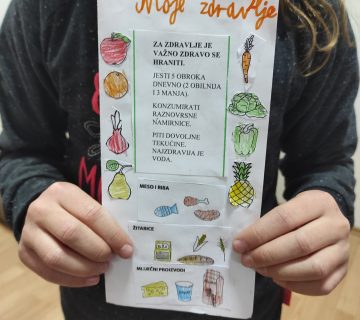 Moje zdravlje
ZA ZDRAVLJE JE
VAŽNO ZDRAVO SE
HRANITI.
JESTI 5 OBROKA
DNEVNO (2 OBILNIJA
I 3 MANJA).
KONZUMIRATI
RAZNOVRSNE
NAMIRNICE.
PITI DOVOLJNE
TEKUĆINE.
NAJZDRAVIJA JE
VODA.
MESO I RIBA
ŽITARICE
MLIJEČNI PROIZVODI